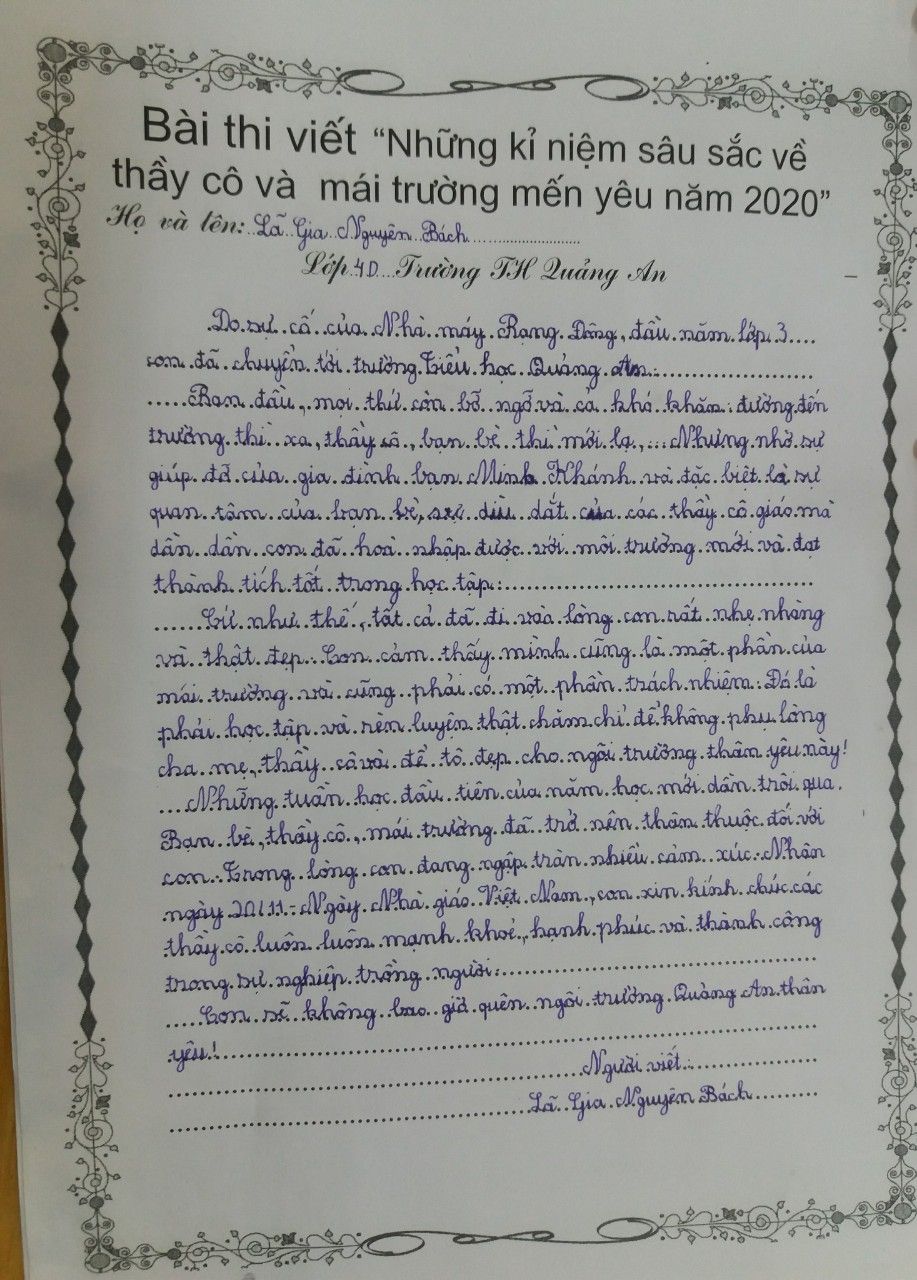 Bài thi viết “Những kỉ niệm sâu sắc về
thầy cô và mái trường mến yêu năm 2020”
Họ và tên: Lã Gia Nguyên Bách
Lớp 4D Trường TH Quảng An
Do sự cố của Nhà máy Rạng Đông, đầu năm lớp 3
con đã chuyển tới trường Tiểu học Quảng An.
Ban đầu, mọi thứ còn bỡ ngỡ và cả khó khăn: đường đến
trường thì xa, thầy cô, bạn bè thì mới lạ,... Nhưng nhờ sự
giúp đỡ của gia đình bạn Minh Khánh và đặc biệt là sự
quan tâm của bạn bè, sự dìu dắt của các thầy cô giáo mà
dần dần con đã hoà nhập được với môi trường mới và đạt
thành tích tốt trong học tập.
Cứ như thế, tất cả đã đi vào lòng con rất nhẹ nhàng
và thật đẹp. Con cảm thấy mình cũng là một phần của
mái trường và cũng phải có một phần trách nhiệm. Đó là
phải học tập và rèn luyện thật chăm chỉ để không phụ lòng
cha mẹ, thầy cô và để tô đẹp cho ngôi trường thân yêu này!
Những tuần học đầu tiên của năm học mới dần trôi qua.
Bạn bè, thầy cô, mái trường đã trở nên thân thuộc đối với
con. Trong lòng con đang ngập tràn nhiều cảm xúc. Nhân
ngày 20/11 - Ngày Nhà giáo Việt Nam, con xin kính chúc các
thầy cô luôn luôn mạnh khoẻ, hạnh phúc và thành công
trong sự nghiệp trồng người.
Con sẽ không bao giờ quên ngôi trường Quảng An thân
yêu!
Người viết
Lã Gia Nguyên Bách